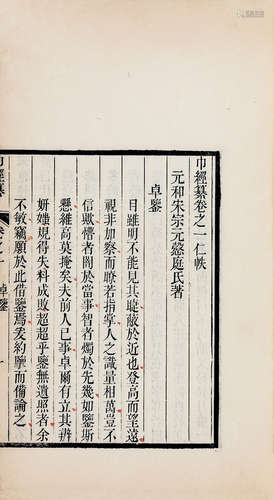 巾經纂卷之一 仁帙
元和宋宗元慤庭氏著
卓鑒
目雖明不見其睫蔽於近也登高而望遠
視非加察而瞭若指掌人之識量相萬豈不
信歟懵者闇於當事智者燭於先幾如鑒斯
懸維高莫掩矣夫前人已事卓爾有立其辨
妍媸規得失料成敗超超乎鑒無遺照者余
不敏竊願於此借鑒焉爰約舉而備論之
巾經纂 卷之一 卓鑒 一